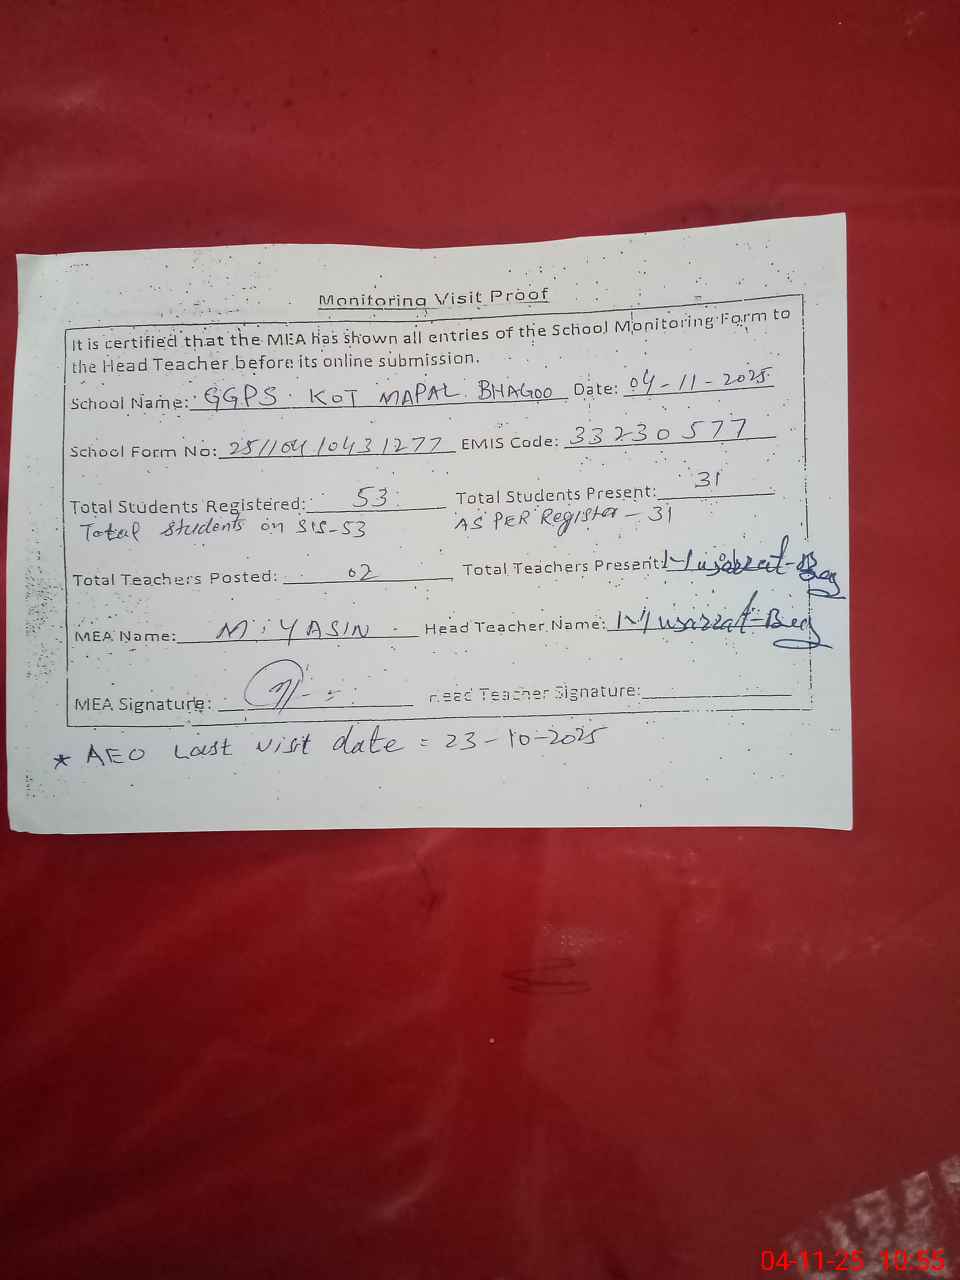 Monitoring Visit Proof
It is certified that the MEA has shown all entries of the School Monitoring Form to
the Head Teacher before its online submission.
School Name: GGPS KOT MAPAL BHAGOO Date: 04-11-2025
School Form No: 251104 10431277 EMIS Code: 33230577
Total Students Registered: 53 Total Students Present: 31
Total Students on SIS-53 AS PER Register - 31
Total Teachers Posted: 02 Total Teachers Present: Musarrat-Beg
MEA Name: M. YASIN Head Teacher Name: Musarrat-Beg
MEA Signature: Head Teacher Signature:
* AEO Last visit date = 23-10-2025
04-11-25 10:55